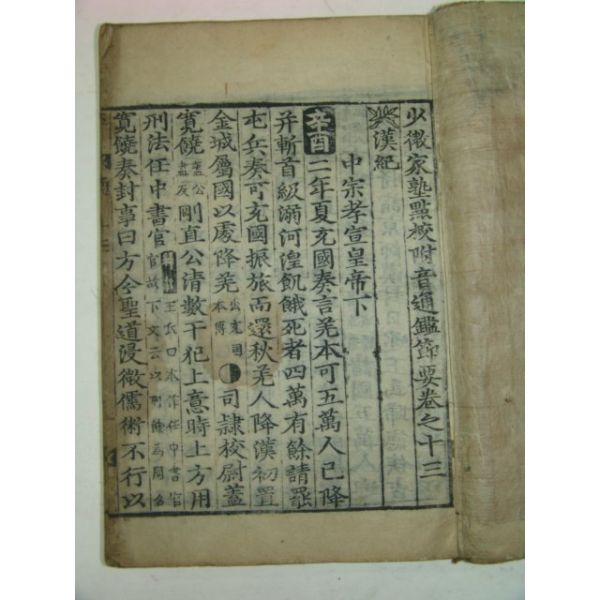 少微家塾點校附音通鑑節要卷之十三
漢紀
中宗孝宣皇帝下
辛酉二年夏充國奏言羌本可五萬人已降
并斬首級溺河湟飢餓死者四萬有餘請罷
屯兵奏可充國振旅而還秋羌人降漢初置
金城屬國以處降羌出充國本傳司隷校尉蓋
寬饒剛直公清數干犯上意時上方用
刑法任中書官王氏曰本作任中書官
寬饒奏封事曰方今聖道浸微儒術不行以